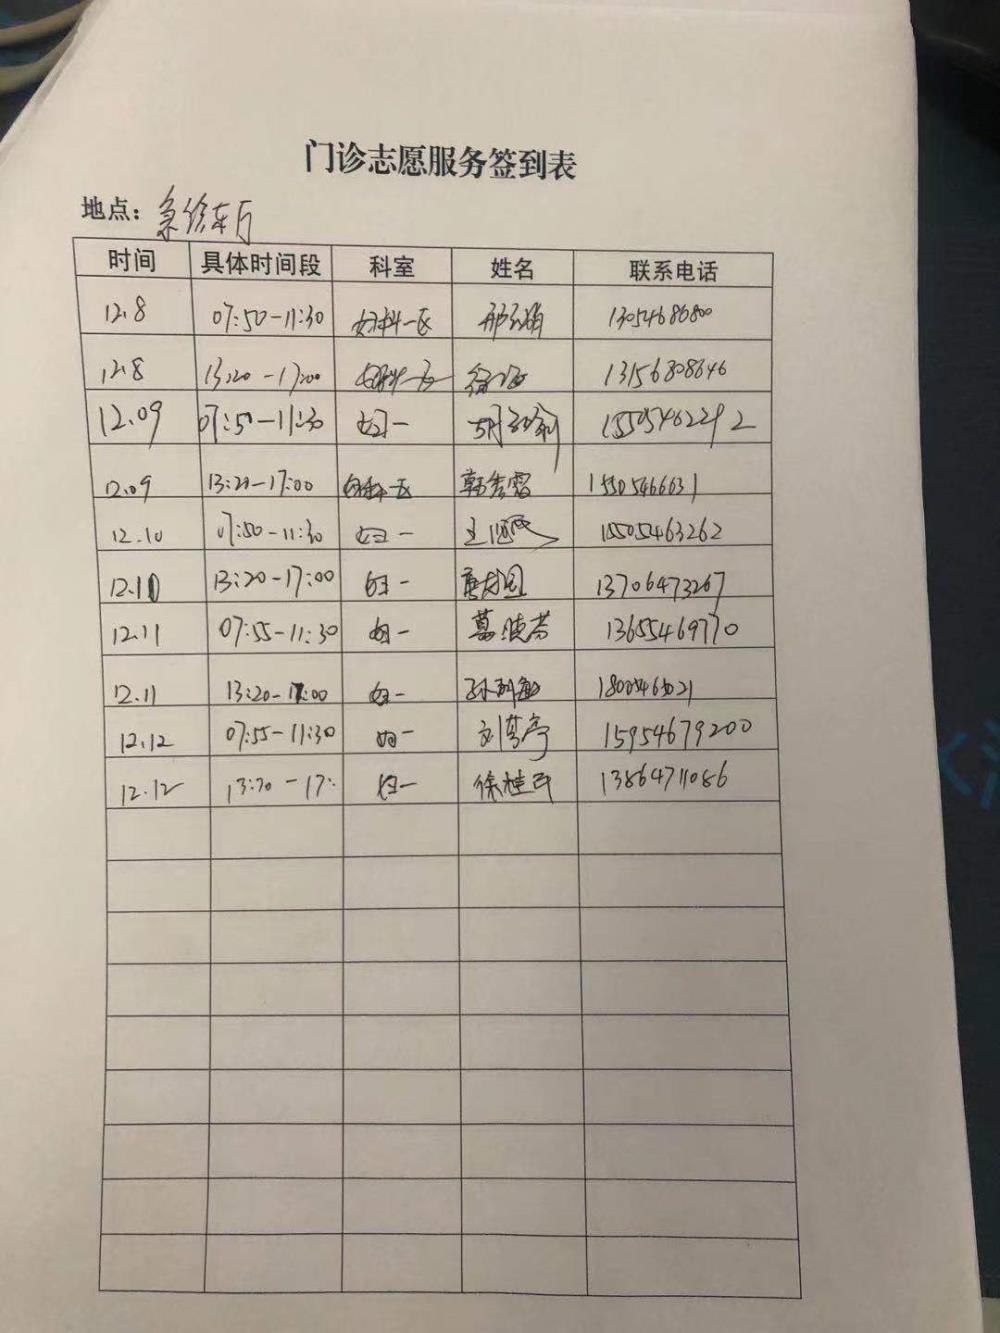 门诊志愿服务签到表
地点：急诊东厅
时间 具体时间段 科室 姓名 联系电话
12.8 07:50-11:30 妇科一区 13054686800
12.8 13:20-17:00 妇科一区 13156808646
12.09 07:50-11:30 妇一 15505462292
12.09 13:20-17:00 妇科一区 韩秀霞 15505466631
12.10 07:50-11:30 妇一 15505463262
12.10 13:20-17:00 妇一 13706473267
12.11 07:55-11:30 妇一 葛晓芳 13655469770
12.11 13:20-17:00 妇一 孙利敏
12.12 07:55-11:30 妇一 15954679200
12.12 13:20-17: 妇一 徐桂民 13864711086